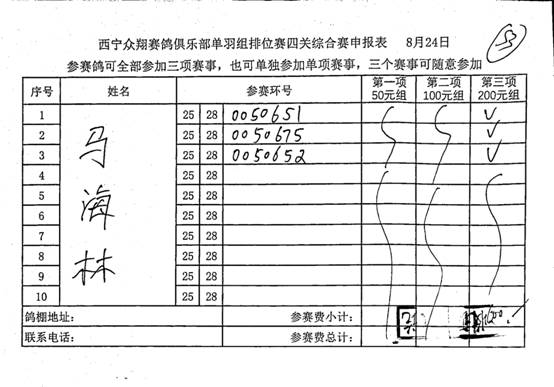 西宁众翔赛鸽俱乐部单羽组排位赛四关综合赛申报表 8月24日 53
参赛鸽可全部参加三项赛事，也可单独参加单项赛事，三个赛事可随意参加
序号 姓名 参赛环号 第一项 50元组 第二项 100元组 第三项 200元组
1 25 28 0050651 ✓
2 马 25 28 0050675 ✓
3 25 28 0050652 ✓
4 25 28
5 海 25 28
6 25 28
7 25 28
8 林 25 28
9 25 28
10 25 28
鸽棚地址： 参赛费小计：
联系电话： 参赛费总计：